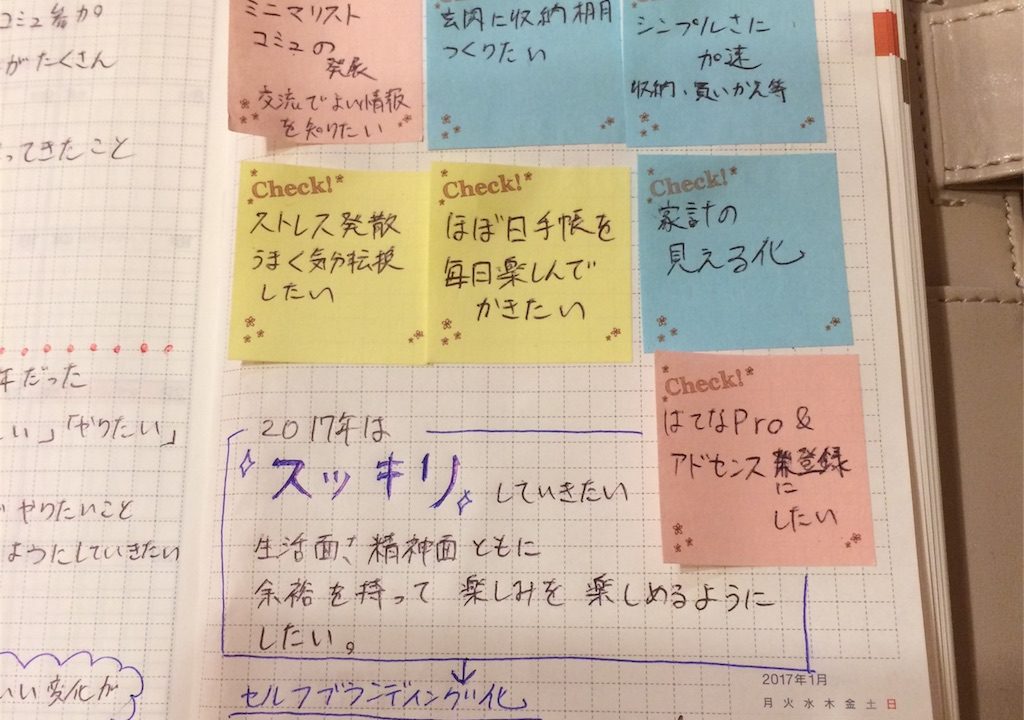 コミュ参加
がたくさん
ってきたこと
年だった
い」「やりたい」
やりたいこと
ようにしていきたい
いい変化が
ミニマリスト
コミュの
発展
交流でよい情報
を知りたい
玄関に収納棚
つくりたい
シンプルさに
加速
収納・買いかえ等
Check!
ストレス発散
うまく気分転換
したい
Check!
ほぼ日手帳を
毎日楽しんで
かきたい
Check!
家計の
見える化
Check!
はてなPro &
アドセンス登録
に
したい
2017年は
スッキリ していきたい
生活面、精神面ともに
余裕を持って 楽しみを 楽しめるように
したい。
セルフブランディング化
2017年1月
月 火 水 木 金 土 日